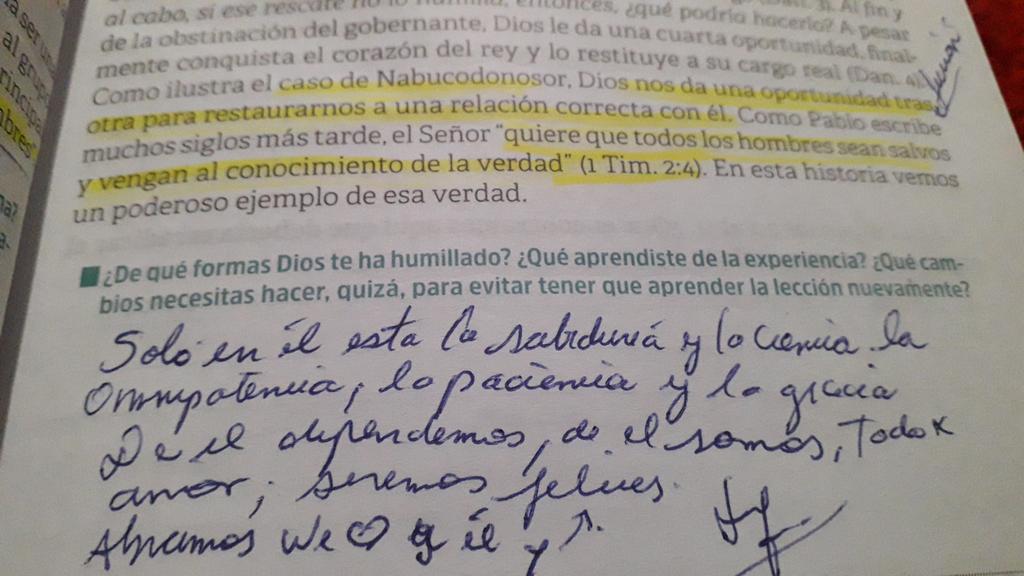 al cabo, si ese rescate no lo humilla, entonces, ¿qué podría hacerlo? A pesar
de la obstinación del gobernante, Dios le da una cuarta oportunidad, final-
mente conquista el corazón del rey y lo restituye a su cargo real (Dan. 4).
Como ilustra el caso de Nabucodonosor, Dios nos da una oportunidad tras
otra para restaurarnos a una relación correcta con él. Como Pablo escribe
muchos siglos más tarde, el Señor "quiere que todos los hombres sean salvos
y vengan al conocimiento de la verdad" (1 Tim. 2:4). En esta historia vemos
un poderoso ejemplo de esa verdad.
¿De qué formas Dios te ha humillado? ¿Qué aprendiste de la experiencia? ¿Qué cam-
bios necesitas hacer, quizá, para evitar tener que aprender la lección nuevamente?
Solo en él esta la sabiduría y la Ciencia la
Omnipotencia, la paciencia y la gracia
De el dependemos, de el somos, Todo x
amor, seremos felices.
Abramos We ♡ él y